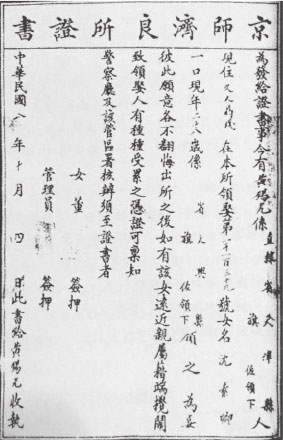 京師濟良所證書
為發給證書事今有黃係直隸省天津縣人
旗佐領下
現住在本所領娶第號女名沈素卿
一口現年二十八歲係省大興縣
旗佐領下願之為妾
彼此願意各不翻悔出所之後如有該女遠近親屬藉端攪鬧
致領娶人有種種受累之憑證可稟知
警察廳及該管區署核辦須至證書者
女董簽押
管理員簽押
中華民國年十月四日此書給黃收執